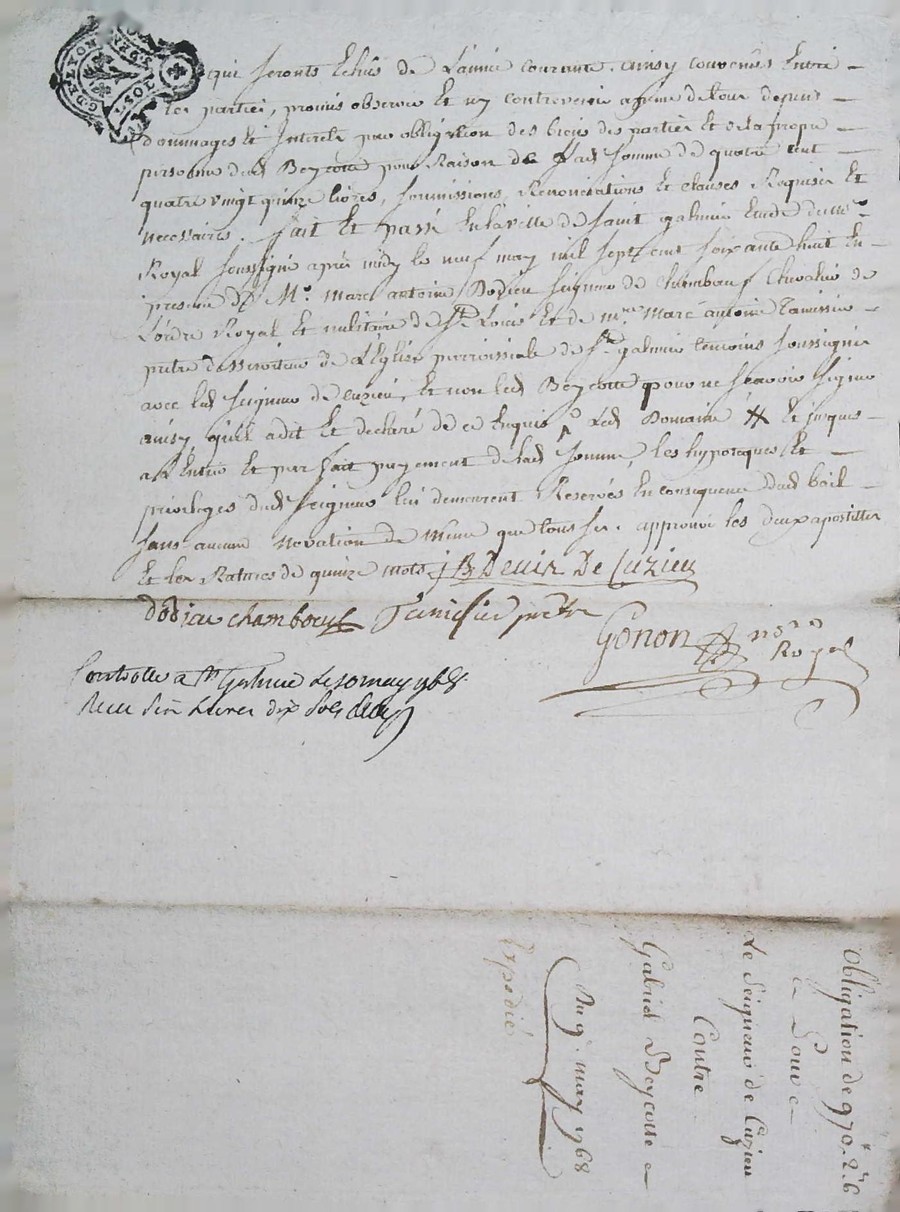 G. DE LYON
qui seronts Echûs de L'année courante. ainsy convenües Entre
les parties, promis observer Et ny contrevenir a peine de tous depens
dommages Et Interets par obligation des biens des parties Et de la propre
personne dud Beycotte pour Raison de lad somme de quatre cent
quatre vingt quinze livres, soumissions, Renonciations Et clauses Requises Et
necessaires. fait Et passé En la ville de Saint galmier Etude du no.re
Royal soussigné après midy le neuf may mil sept cent soixante huit En
presence de M.e Marc antoine Dodieu seigneur de Chambœuf Chevalier de
L'ordre Royal et militaire de S.t Louis Et de m.re Marc antoine Tamisier
prêtre desserviteur de L'Eglise parroissiale de S.t galmier temoins soussignés
avec led seigneur de cuzieu, Et non led Beycotte pour ne sçavoir signer
ainsy qu'il a dit Et declaré de ce Enquis Led Domaine Et jusques
a l'Entier Et parfait payement de lad somme, les hypoteques Et
privileges dud seigneur lui demeurent Reservés En consequence dud bail
sans aucune novation de même que tous ses. approuvé les deux apostilles
Et les Ratures de quinze mots. De Cuzieu
dodieu chamboeuf Tamisier prêtre
Gonon no.re Royal
Controllé a St Galmier le 10 may 1768
Reçu livres dix sols
Obligation de 970.# 2.s 6
Pour
Le Seigneur de Cuzieu
Contre
Gabriel Beycotte
Du 9. may 1768
Expédié